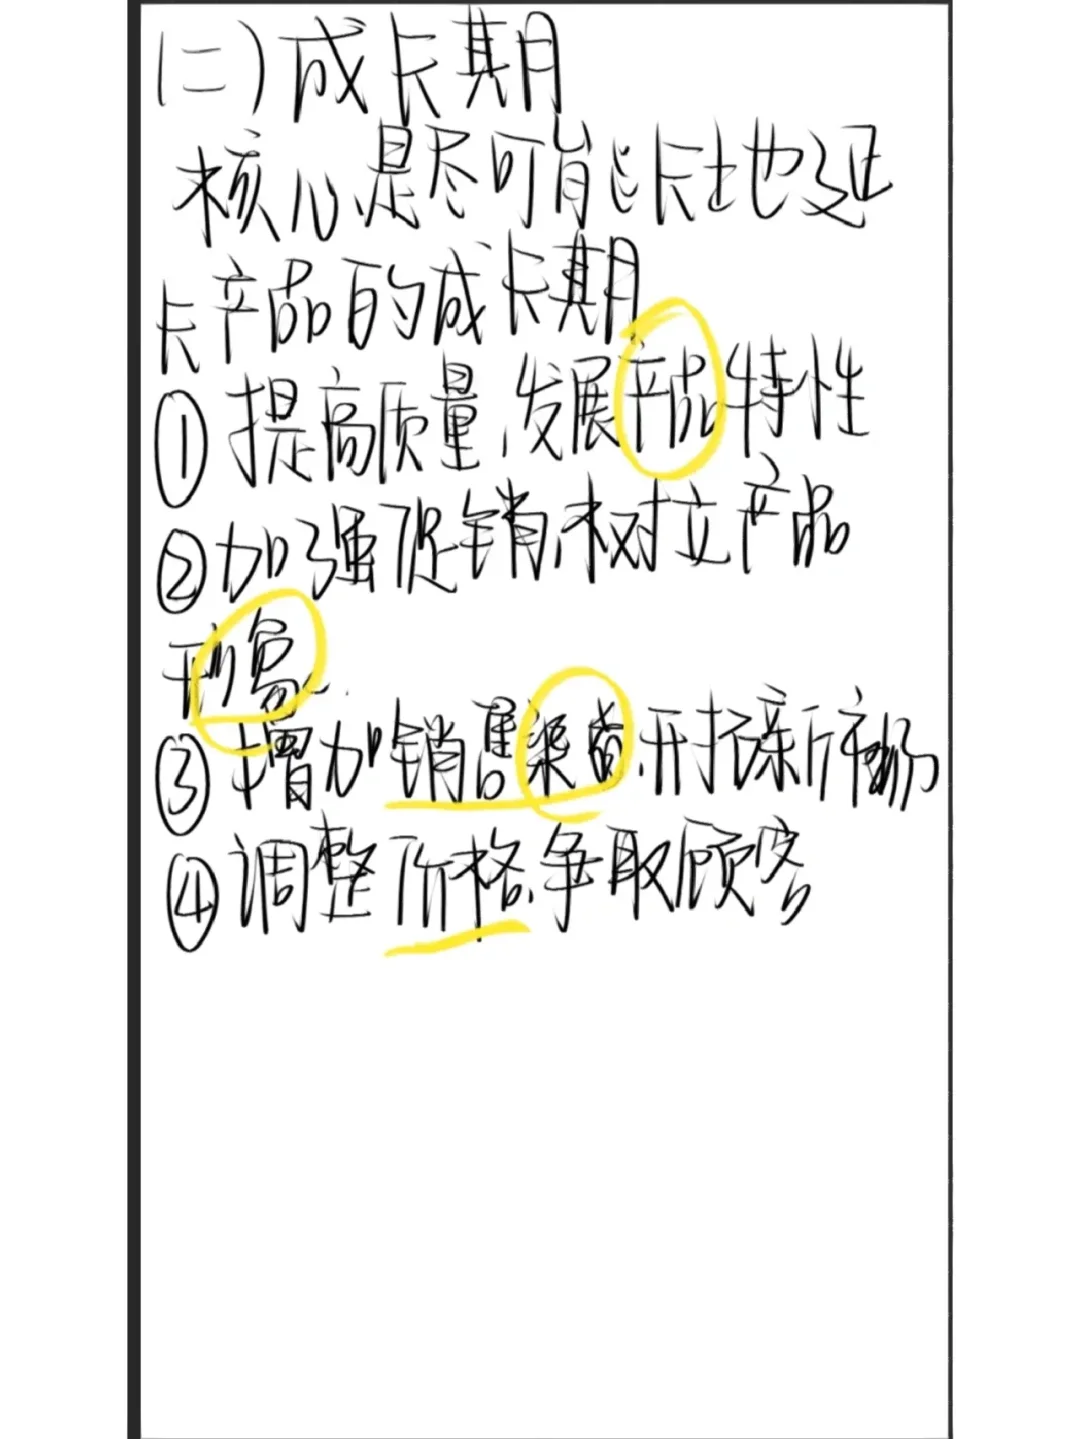 (二)成长期
核心是尽可能长地延
长产品的成长期
①提高质量,发展产品特性
②加强促销,树立产品
形象
③增加销售渠道,开拓新市场
④调整价格,争取顾客